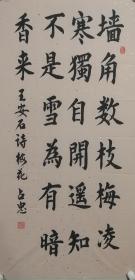 墙角数枝梅凌
寒獨自開遥知
不是雪為有暗
香来
王安石诗梅花 占忠